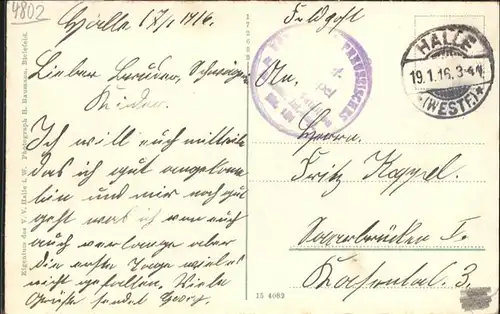 4802
Halle 17/1 1916.
Lieber Bruder, Schwägerin
Kinder.
Ich will euch mitteilen
das ich gut angekom
bin und mir noch gut
geht was ich von euch
auch verlange aber
die ersten Tage will es
nicht gefallen. Viele
Grüße sendet Georg.
Eigentum des V. V. Halle i. W. Photograph H. Baumann, Bielefeld.
15 4062
Feldpost
PREUSSISCHES
HALLE
19.1.16. 3-4 N.
* (WESTF.) *
An.
Herrn.
Fritz Kappel.
Saarbrücken
3.